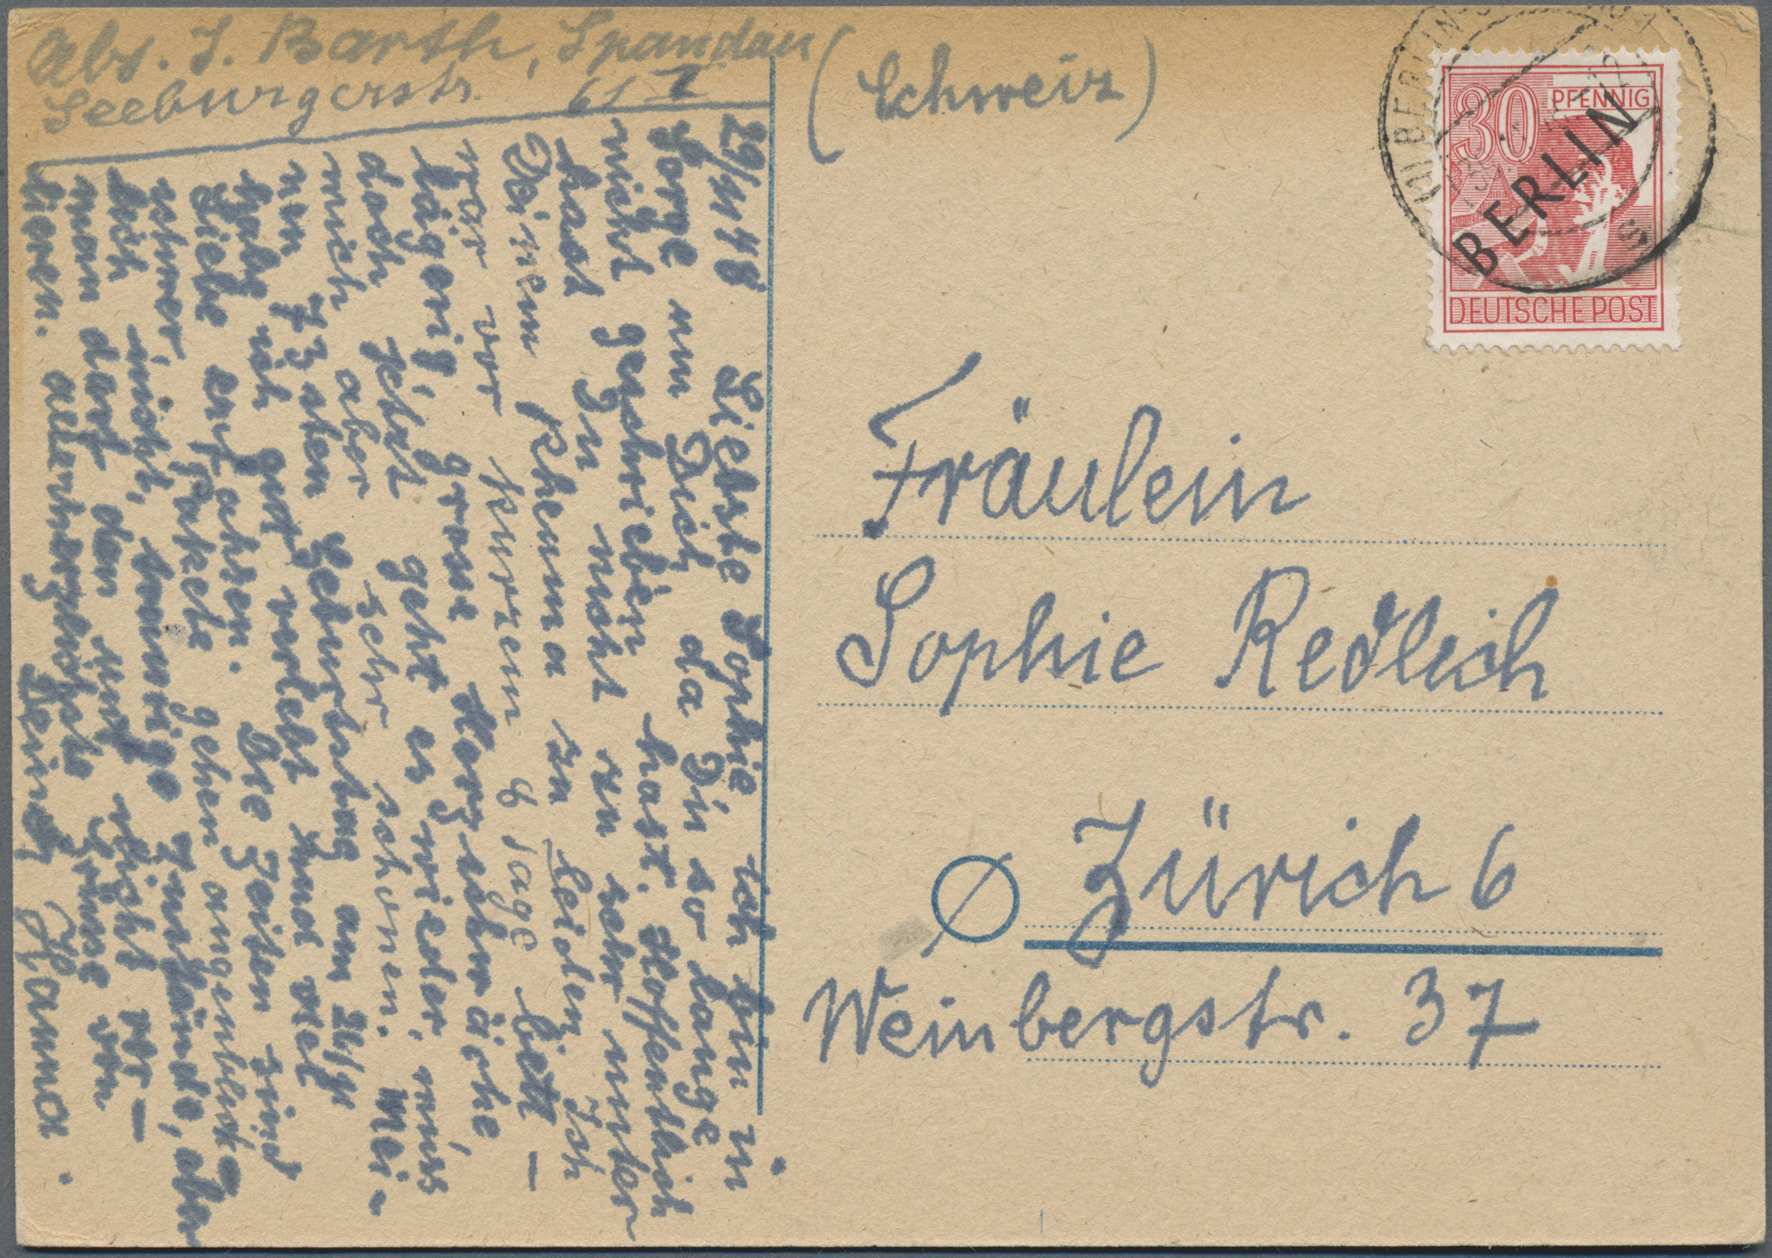 Abs. J. Barth, Spandau
Seeburgerstr. 61 I
(Schweiz)
30 PFENNIG
BERLIN
DEUTSCHE POST
Fräulein
Sophie Redlich
Zürich 6
Weinbergstr. 37
29/11 48 Liebste Sophie ich bin in
Sorge um Dich da Du so lange
nicht geschrieben hast. Hoffentlich
hast Du nicht zu sehr unter
Deinem Rheuma zu leiden. Ich
war vor kurzem 8 Tage bett-
lägerig, grosse Herzschwäche
doch jetzt geht es wieder, muss
mich aber sehr schonen. Mei-
nen 73sten Geburtstag am 24/11
hab ich gut verlebt und viel
Liebe erfahren. Die Zeiten sind
schwer, Pakete gehen augenblickl.
nicht, traurige Zustände, aber
man darf den Mut nicht ver-
lieren. allerherzlichste Grüsse von
Deiner Hanna.